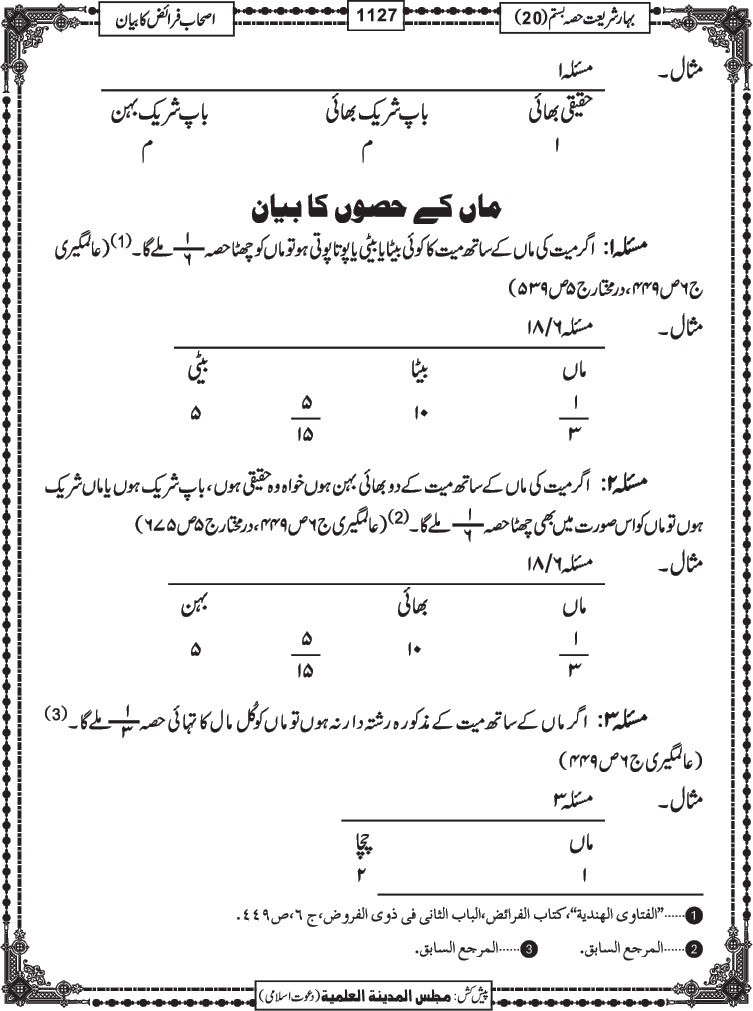 بہار شریعت حصہ بستم (20)
1127
اصحاب فرائض کا بیان
مثال۔ مسئلہ۱
حقیقی بھائی باپ شریک بھائی باپ شریک بہن
۱ م م
ماں کے حصوں کا بیان
مسئلہ۱: اگر میت کی ماں کے ساتھ میت کا کوئی بیٹا یا بیٹی یا پوتا پوتی ہو تو ماں کو چھٹا حصہ ۱/۶ ملے گا۔(1) (عالمگیری
ج۶ ص۴۴۹، درمختار ج۵ ص۵۳۹)
مثال۔ مسئلہ ۱۸/۶
ماں بیٹا بیٹی
۱/۳ ۱۰ ۵/۱۵ ۵
مسئلہ۲: اگر میت کی ماں کے ساتھ میت کے دو بھائی بہن ہوں خواہ وہ حقیقی ہوں، باپ شریک ہوں یا ماں شریک
ہوں تو ماں کو اس صورت میں بھی چھٹا حصہ ۱/۶ ملے گا۔(2) (عالمگیری ج۶ ص۴۴۹، درمختار ج۵ ص۶۷۵)
مثال۔ مسئلہ ۱۸/۶
ماں بھائی بہن
۱/۳ ۱۰ ۵/۱۵ ۵
مسئلہ۳: اگر ماں کے ساتھ میت کے مذکورہ رشتہ دار نہ ہوں تو ماں کو کُل مال کا تہائی حصہ ۱/۳ ملے گا۔(3)
(عالمگیری ج۶ ص۴۴۹)
مثال۔ مسئلہ ۳
ماں چچا
۱ ۲
1......"الفتاوی الھندیة"، کتاب الفرائض، الباب الثانی فی ذوی الفروض، ج ۶، ص ۴۴۹.
2......المرجع السابق. 3......المرجع السابق.
پیش کش: مجلس المدینۃ العلمیۃ (دعوت اسلامی)